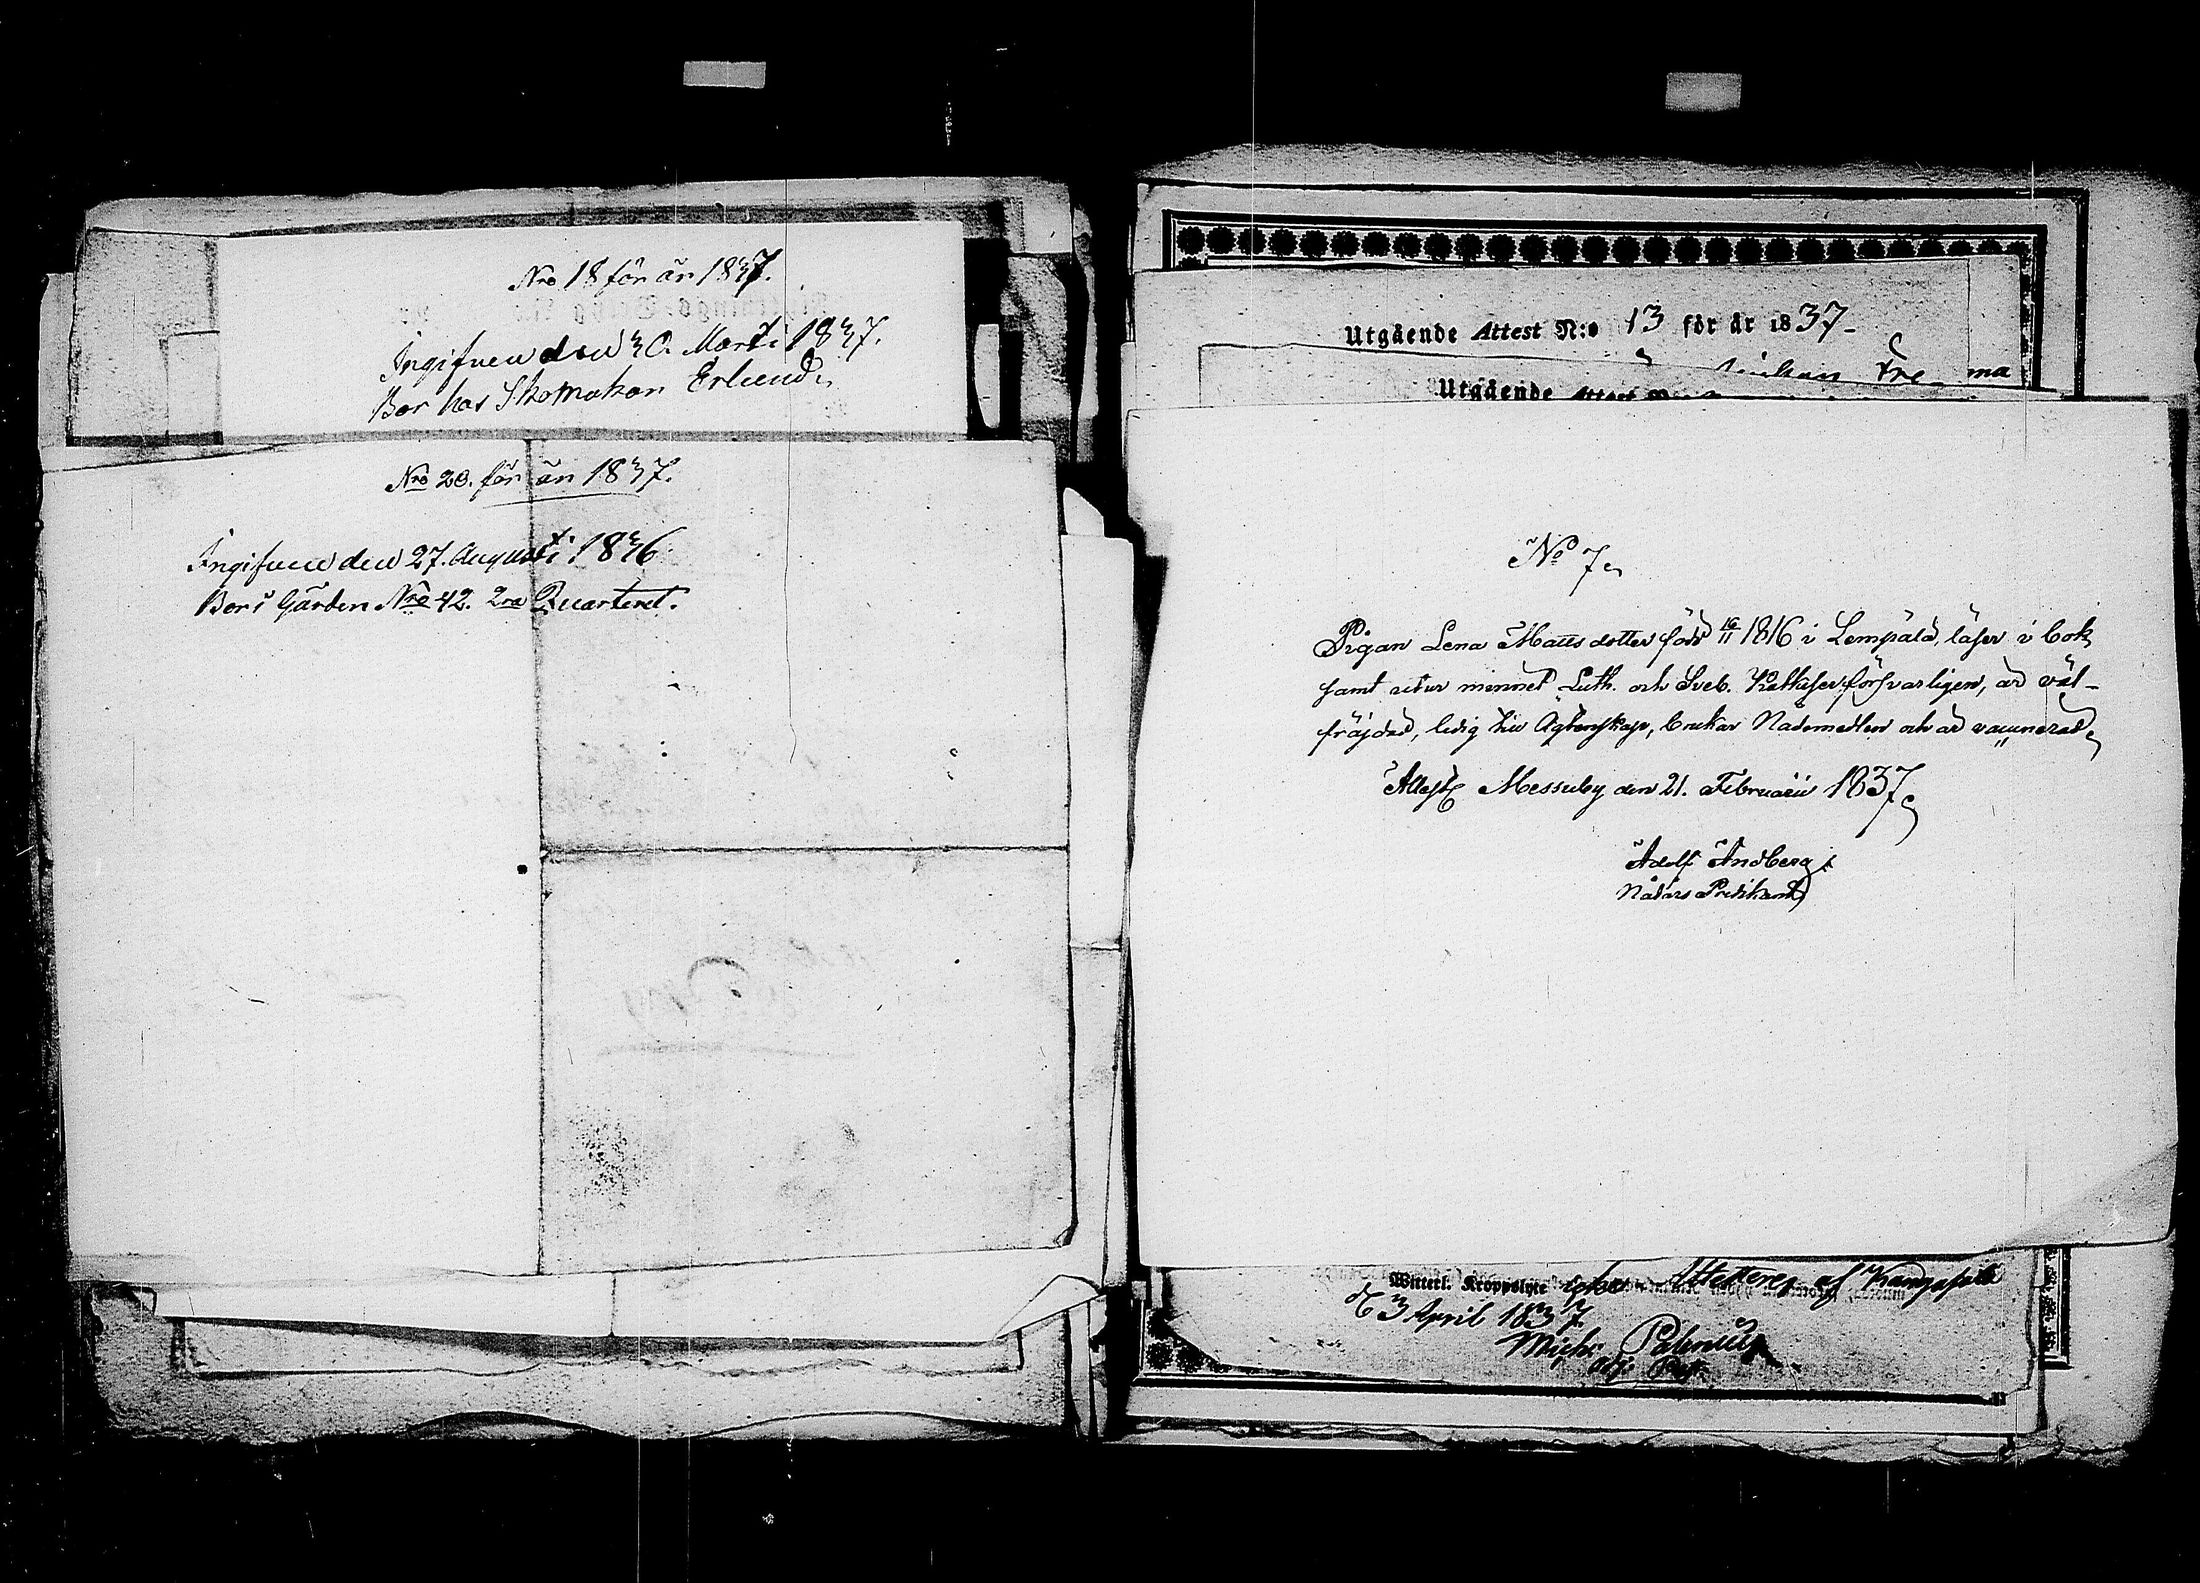 Nro 18 för år 1837.
Ingifven den 30. Marti 1837.
Bor hos Skomakar Erlund.
Nro 20. för år 1837.
Ingifven den 27. Augusti 1836
Bor i Gården Nro 42. 2ra Quarteret.
Utgående Attest N:o 13 för år 1837-
Utgående Attest
No 7.
Pigan Lena Mattsdotter född 16/11 1816 i Lempälä, läser i bok
samt utur minnet Luth. och Sveb. Katkeser försvarligen, är väl-
fräjdad, ledig till Ägtenskap, brukar Nådemedlen och är vaccinerad.
Attest. Messuby den 21. Februarii 1837.
Adolf Andberg.
Nådårs Predikant
Witterl. Kroppslyte af Kangasala
d 3 April 1837
Mich: